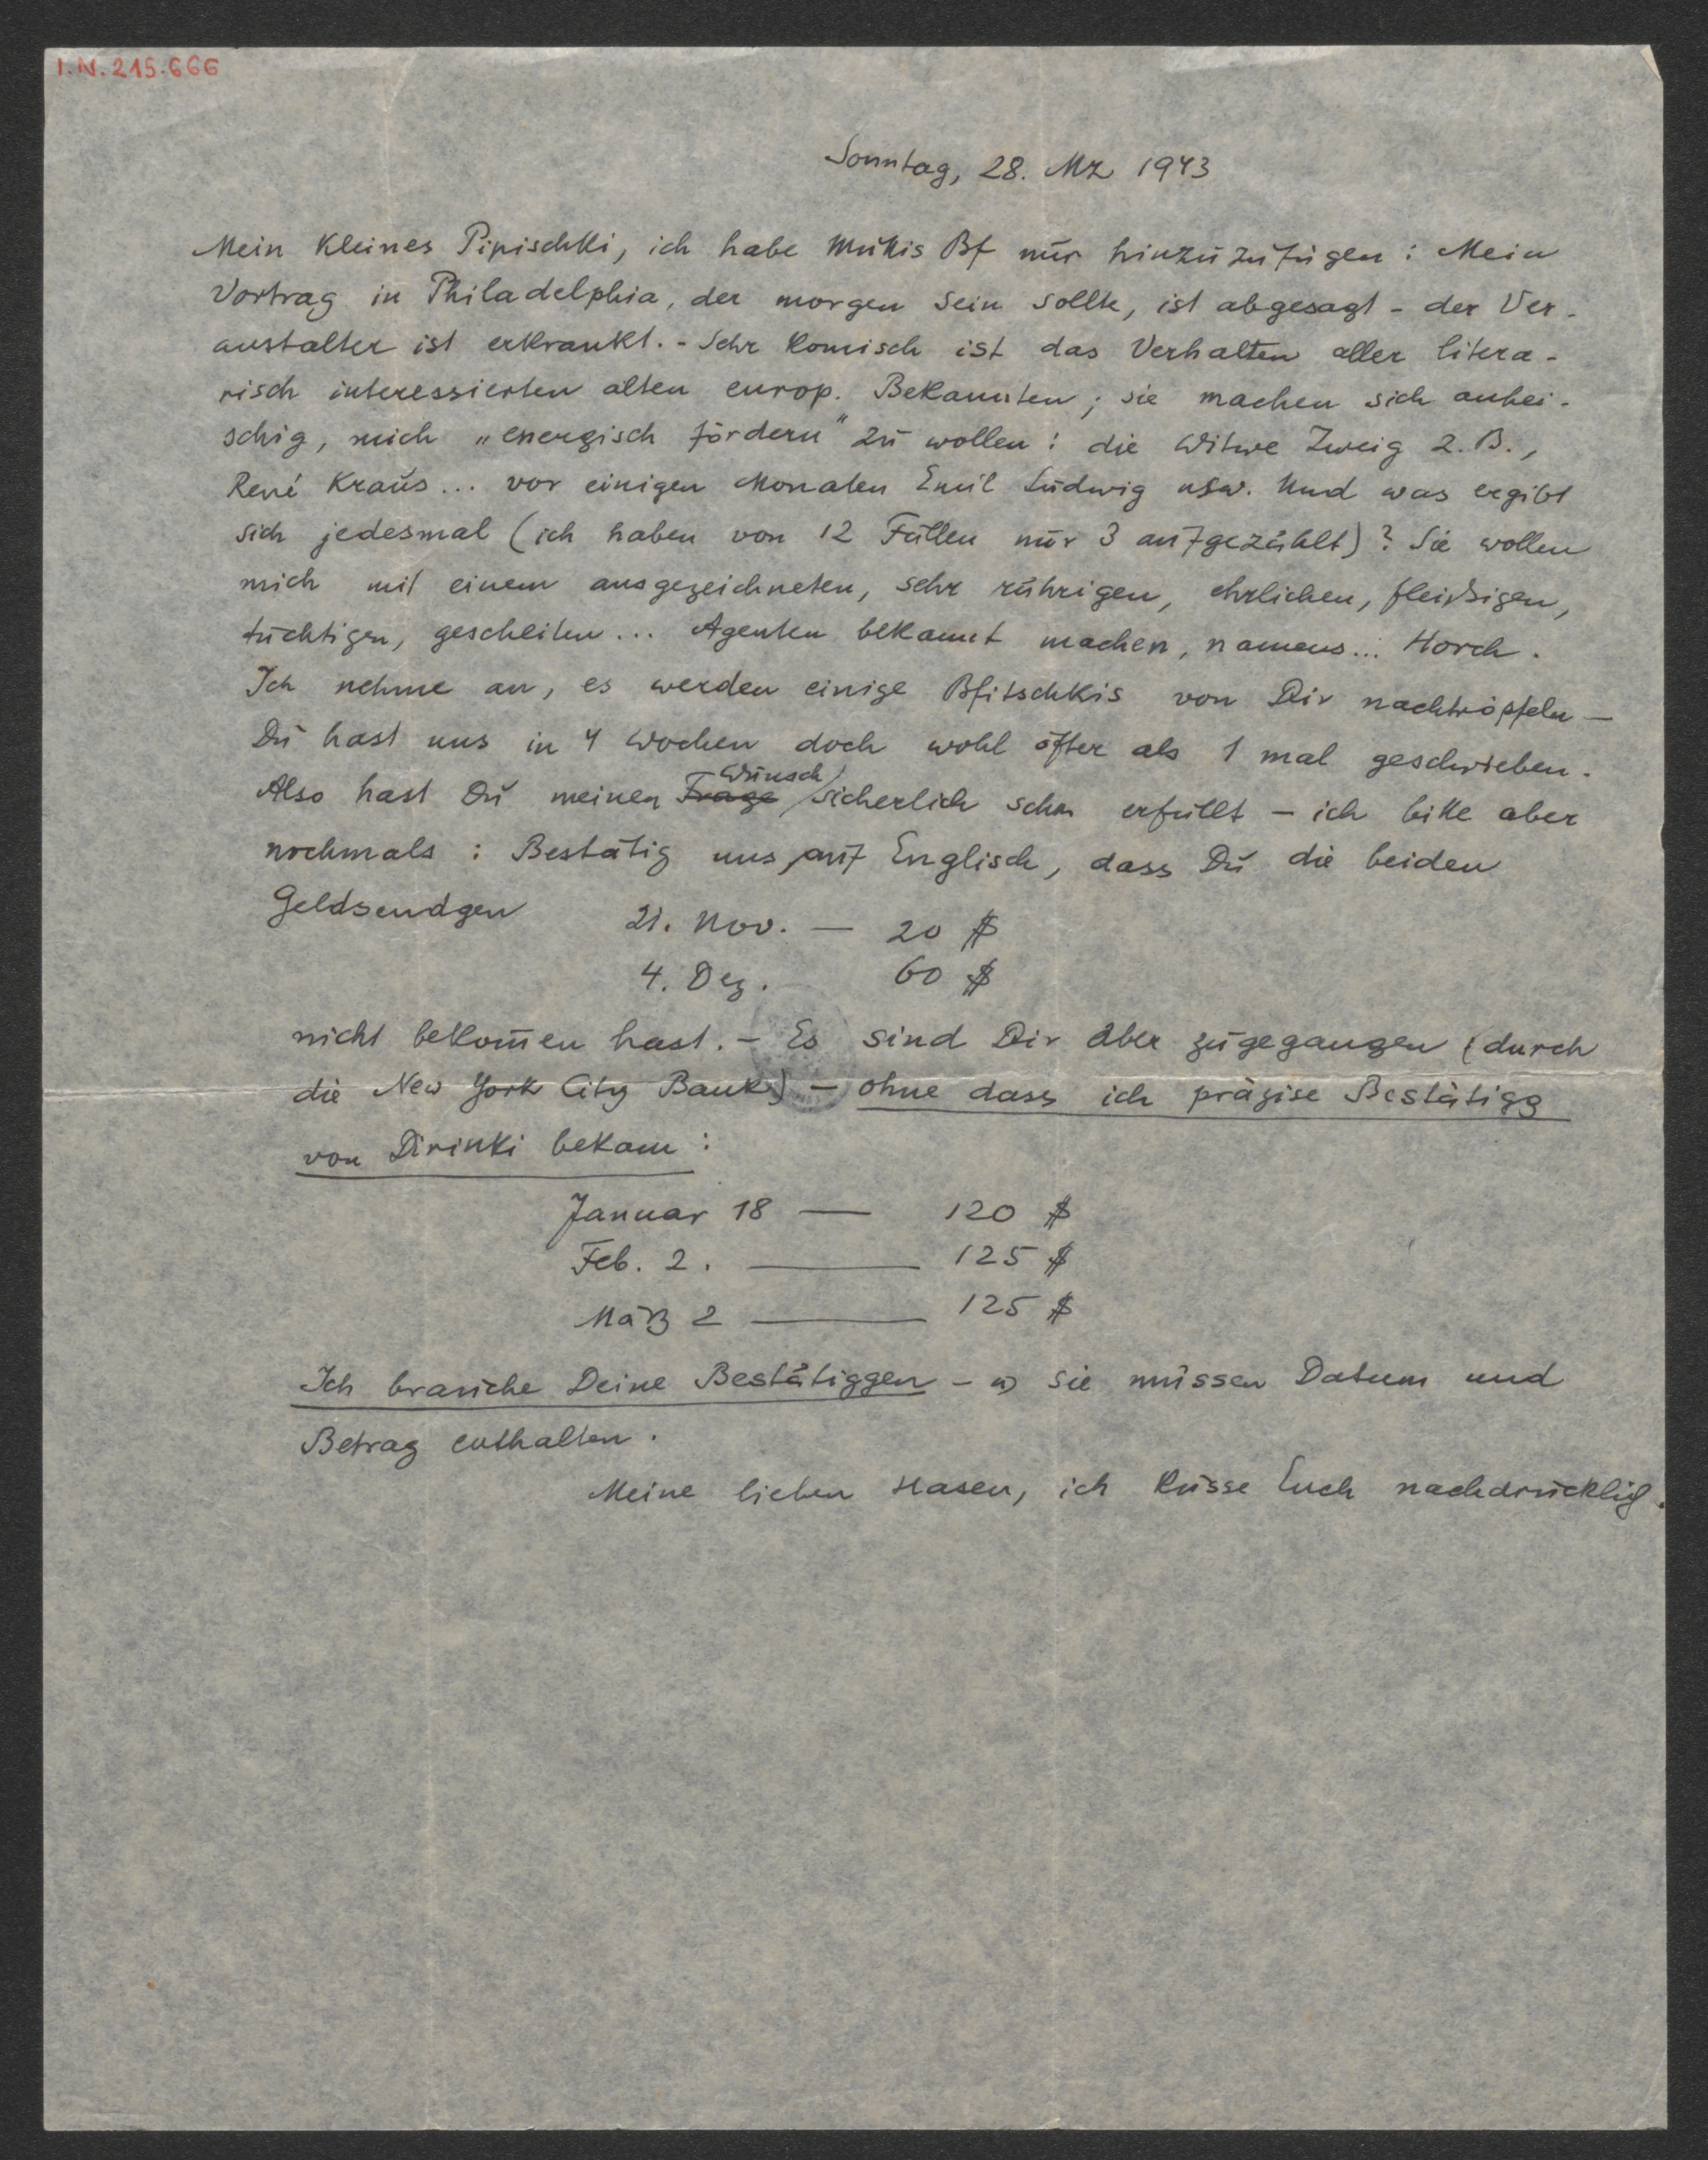 I.N. 215.666
Sonntag, 28. Mz 1943
Mein kleines Pipischki, ich habe Mukis Bf nur hinzuzufügen: Mein
Vortrag in Philadelphia, der morgen sein sollte, ist abgesagt - der Ver-
anstalter ist erkrankt. - Sehr komisch ist das Verhalten aller litera-
risch interessierten alten europ. Bekannten; sie machen sich anhei-
schig, mich „energisch fördern" zu wollen: die Witwe Zweig z.B.,
René Kraus... vor einigen Monaten Emil Ludwig usw. Und was ergibt
sich jedesmal (ich haben von 12 Fällen nur 3 aufgezählt)? Sie wollen
mich mit einem ausgezeichneten, sehr rührigen, ehrlichen, fleißigen,
tüchtigen, gescheiten... Agenten bekannt machen, namens... Horch.
Ich nehme an, es werden einige Bfitschkis von Dir nachtröpfeln —
Du hast uns in 4 Wochen doch wohl öfter als 1 mal geschrieben.
Also hast Du meinen Frage Wunsch sicherlich schon erfüllt – ich bitte aber
nochmals: Bestätig uns, auf Englisch, dass Du die beiden
Geldsendgen 21. Nov. — 20 $
4. Dez. 60 $
nicht bekom̄en hast. – Es sind Dir aber zugegangen (durch
die New York City Bank) – ohne dass ich präzise Bestätigg
von Dirinki bekam:
Januar 18 — 120 $
Feb. 2. — 125 $
März 2 — 125 $
Ich brauche Deine Bestätiggen – sie müssen Datum und
Betrag enthalten.
Meine lieben Hasen, ich küsse Euch nachdrücklich.